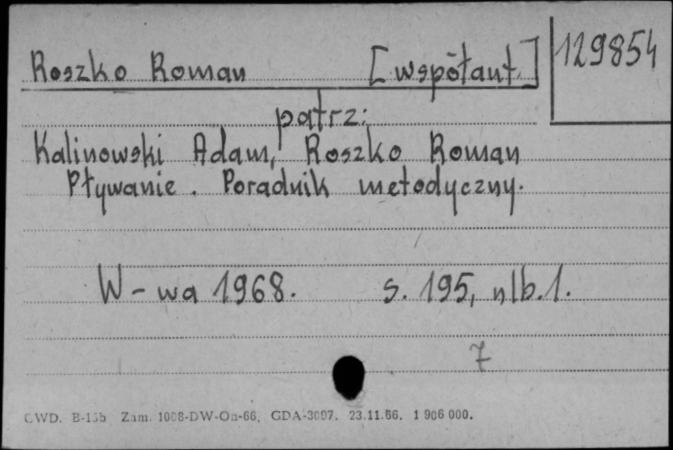 Roszko Roman [współaut.] 129854
patrz:
Kalinowski Adam, Roszko Roman
Pływanie. Poradnik metodyczny.
W-wa 1968. s. 195, nlb. 1.
7
CWD. Zam. GDA-3097. 23.11.66. 1 906 000.